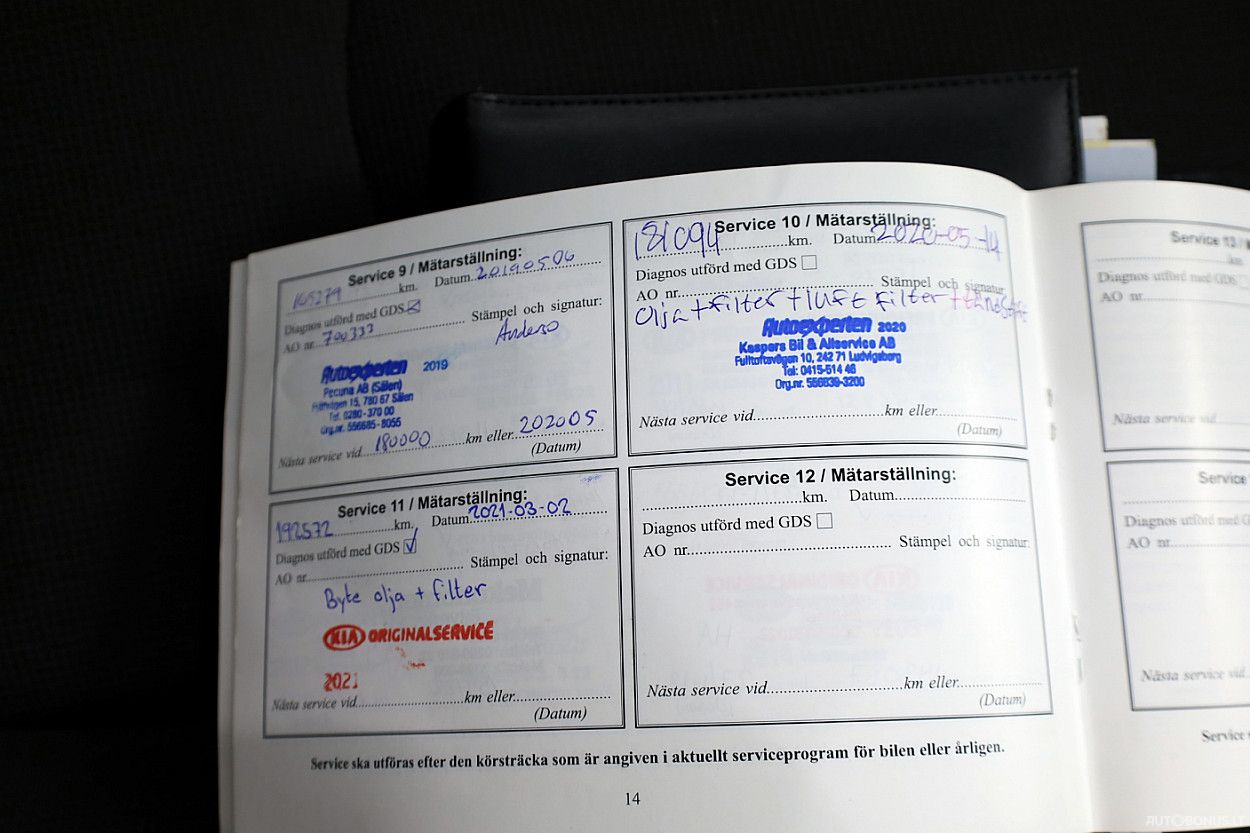 Service 9 / Mätarställning:
165279 km. Datum 20190506
Diagnos utförd med GDS
AO nr. 700333 Stämpel och signatur:
Anderso
Autoexperten 2019
Pecuna AB (Sälen)
15, 780 67 Sälen
Tel. 0280-370 00
Org.nr. 556685-8055
Nästa service vid 180000 km eller 202005
(Datum)
Service 10 / Mätarställning:
181094 km. Datum 2020-05-14
Diagnos utförd med GDS
AO nr. Stämpel och signatur:
Olja + filter + luft filter + tändstift
Autoexperten 2020
Kaspers Bil & Allservice AB
Fulltoftavägen 10, 242 71 Ludvigsborg
Tel: 0415-514 46
Org.nr. 556839-3200
Nästa service vid km eller
(Datum)
Service 11 / Mätarställning:
192572 km. Datum 2021-03-02
Diagnos utförd med GDS
AO nr. Stämpel och signatur:
Byte olja + filter
KIA ORIGINALSERVICE
2021
Nästa service vid km eller
(Datum)
Service 12 / Mätarställning:
km. Datum
Diagnos utförd med GDS
AO nr. Stämpel och signatur:
Nästa service vid km eller
(Datum)
Service ska utföras efter den körsträcka som är angiven i aktuellt serviceprogram för bilen eller årligen.
14
Service 13 /
km.
Diagnos utförd med GDS
AO nr.
Nästa service vid
Service
Diagnos utförd med GDS
AO nr.
Nästa service vid
Service
AUTOBONUS.LT